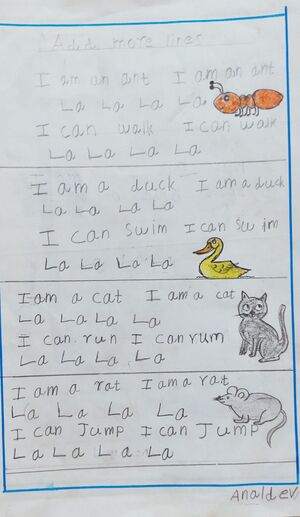 Add more lines
I am an ant I am an ant
La La La La
I can walk I can walk
La La La La
I am a duck I am a duck
La La La La
I can swim I can swim
La La La La
I am a cat I am a cat
La La La La
I can run I can rum
La La La La
I am a rat I am a rat
La La La La
I can Jump I can Jump
La La La La
Analdev